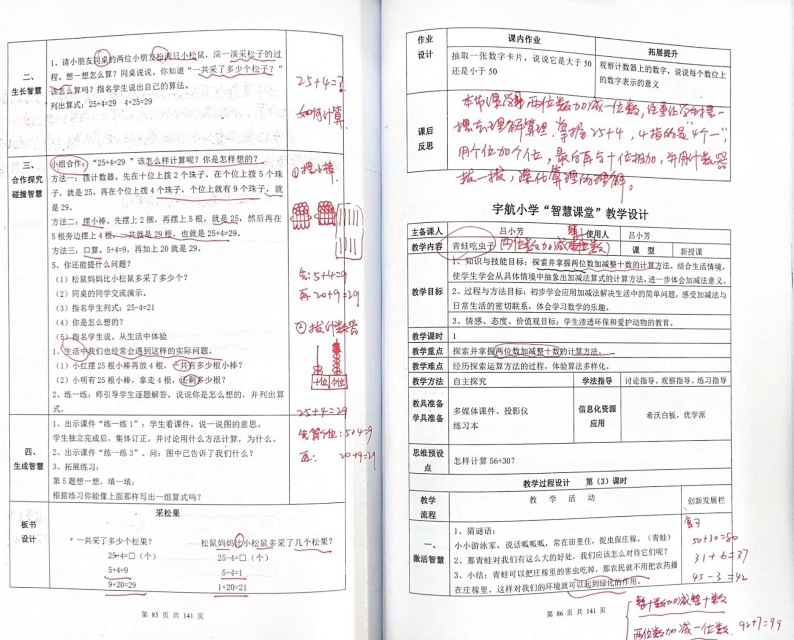 二、
生长智慧
1、请小朋友同桌的两位小朋友扮两只小松鼠，演一演采松子的过
程。想一想怎么算？同桌说说。你知道“一共采了多少个松子？”
该怎么算吗？指名学生说出自己的算法。
列出算式：25+4=29  4+25=29
25+4=？
如何计算
三、
合作探究
碰撞智慧
小组合作：“25+4=29”该怎么样计算呢？你是怎样想的？
方法一：拨计数器。先在十位上拨2个珠子，在个位上拨5个珠
子，就是25，再在个位上拨4个珠子，个位上就有9个珠子，就
是29。
方法二：摆小棒。先摆上2捆，再摆上5根，就是25，然后再在
5根旁边摆上4根，一共就是29根，也就是25+4=29。
方法三：口算。5+4=9，再加上20就是29。
5、你还能提什么问题？
（1）松鼠妈妈比小松鼠多采了多少个？
（2）同桌的同学交流演示。
（3）指名学生列式：25-4=21
（4）你是怎么想的？
（5）指名学生说。从生活中体验
1、生活中我们也经常会遇到这样的实际问题。
（1）小红摆25根小棒再放4根，一共有多少根小棒？
（2）小明有25根小棒，拿走4根，还剩多少根？
2、练一练：师引导学生逐题解答，说说你是怎么想的，并列出算
式。
①摆小棒
先：5+4=9
再 20+9=29
②拨计数器
十位 个位
25+4=29
先算个位：5+4=9
再： 20+9=29
四、
生成智慧
1、出示课件“练一练1”：学生看课件，说一说图的意思。
学生独立完成后，集体订正，并讨论用什么方法计算，为什么。
2、出示课件“练一练3”。问：图中已告诉了我们什么？
3、拓展练习：
第5题想一想，填一填：
根据练习你能像上面那样写出一组算式吗？
板书
设计
采松果
一共采了多少个松果？  松鼠妈妈比小松鼠多采了几个松果？
25+4=□（个）  25-4=□（个）
5+4=9  5-4=1
9+20=29  1+20=21
第 85 页 共 141 页
作业
设计
课内作业
抽取一张数字卡片，说说它是大于50
还是小于50
拓展提升
观察计数器上的数字，说说每个数位上
的数字表示的意义
课后
反思
掌握25+4，4指的是“4个一”，
用个位加个位，最后再与十位相加，并用计数器
拨一拨，深化算理的理解。
宇航小学“智慧课堂”教学设计
主备课人 吕小芳 使用人 吕小芳
教学内容 青蛙吃虫子 课 型 新授课
教学目标
1、知识与技能目标：探索并掌握两位数加减整十数的计算方法，结合生活情境，
使学生学会从具体情境中抽象出加减法算式的计算方法，进一步体会加减法意义。
2、过程与方法目标：初步学会应用加减法解决生活中的简单问题，感受加减法与
日常生活的密切联系，体会学习数学的乐趣。
3、情感、态度、价值观目标：学生渗透环保和爱护动物的教育。
教学课时 1
教学重点 探索并掌握两位数加减整十数的计算方法。
教学难点 经历探索运算方法的过程，体验算法多样化。
教学方法 自主探究 学法指导 讨论指导、观察指导、练习指导
教具准备
学具准备
多媒体课件、投影仪
练习本
信息化资源
应用
希沃白板，优学派
思维预设
点
怎样计算56+30？
教学过程设计 第（3）课时
教学
流程
教 学 活 动
创新发展栏
一、
激活智慧
1、猜谜语：
小小游泳家，说话呱呱呱，常在田里住，捉虫保庄稼。（青蛙）
2、那青蛙对我们有这么大的好处，我们应该怎么对待它们呢？
3、小结：青蛙可以把庄稼里的害虫吃掉，那农民就不用把农药播
在庄稼里，这样对我们的环境就可以起到绿化的作用。
复习
50+30=80
31+6=37
45-3=42
整十数加减整十数
两位数加减一位数 92+7=99
第 86 页 共 141 页